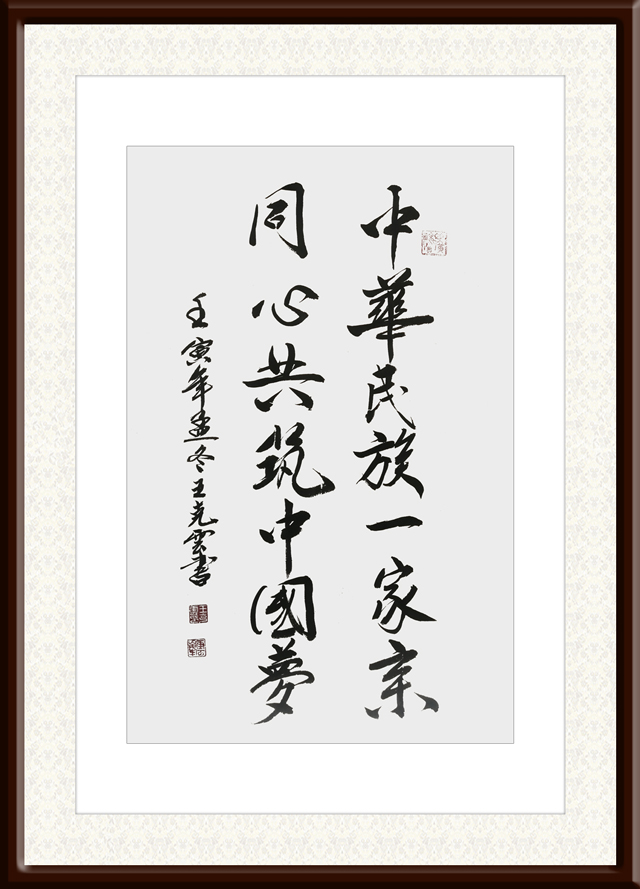 中華民族一家亲
同心共筑中國夢
壬寅年孟冬王克雲書